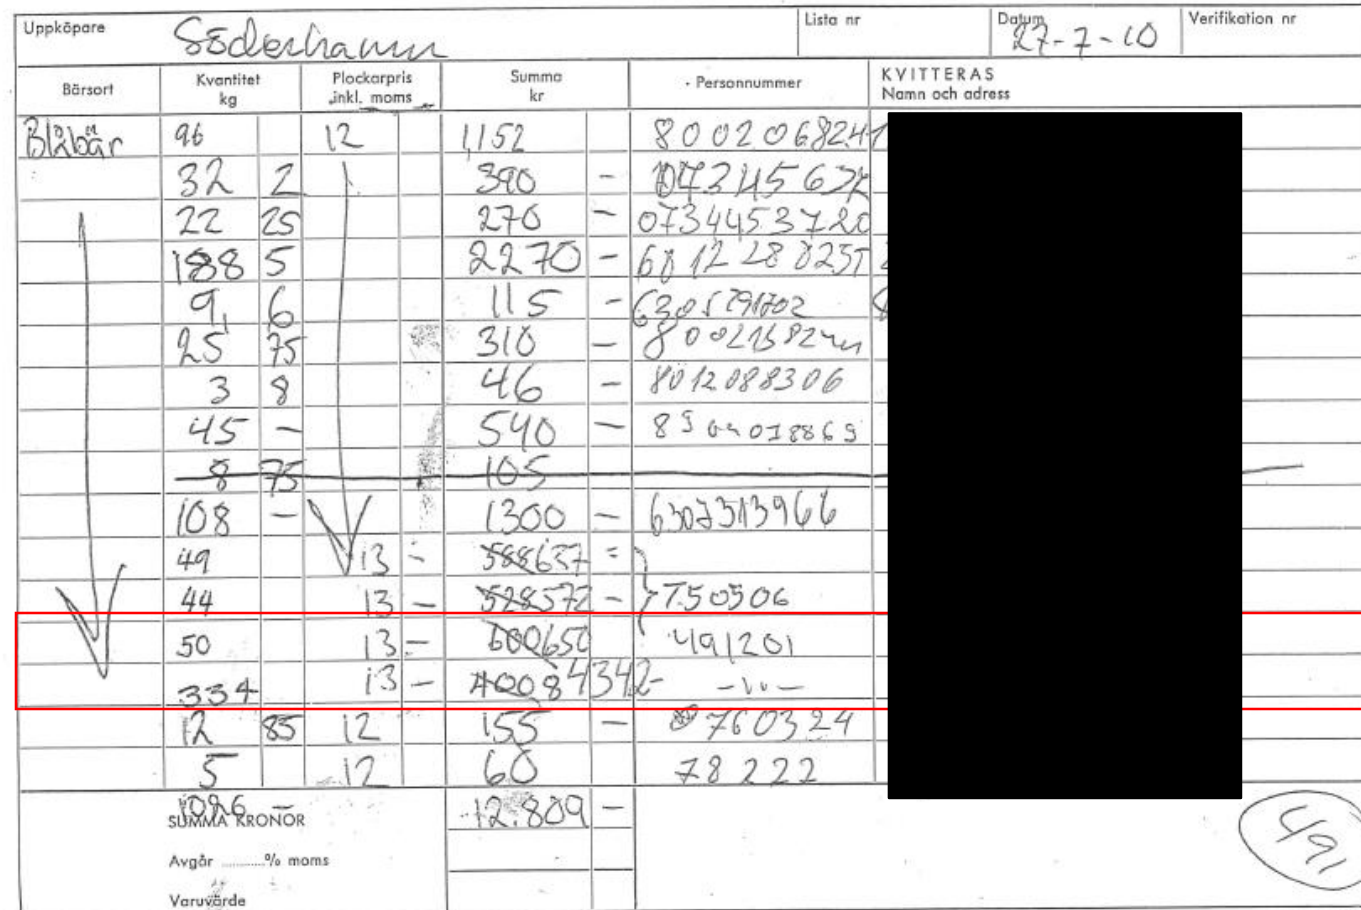 Uppköpare Söderhamn Lista nr Datum 27-7-10 Verifikation nr
Bärsort Kvantitet kg Plockarpris inkl. moms Summa kr Personnummer KVITTERAS Namn och adress
Blåbär 96 12 1,152
32 2 390 -
22 25 270 - 0734453720
188 5 2270 -
9, 6 115 -
25 75 310 -
3 8 46 - 8012088306
45 - 540 -
8 75 105
108 - 1300 -
49 13 - 588 637 =
44 13 - 528 572 - 750506
50 13 - 600 650 491201
334 13 - 4008 4342- -"-
12 85 12 155 - 760324
5 12 60 78222
1026 - 12.809 -
SUMMA KRONOR
Avgår ......... % moms
Varuvärde
491